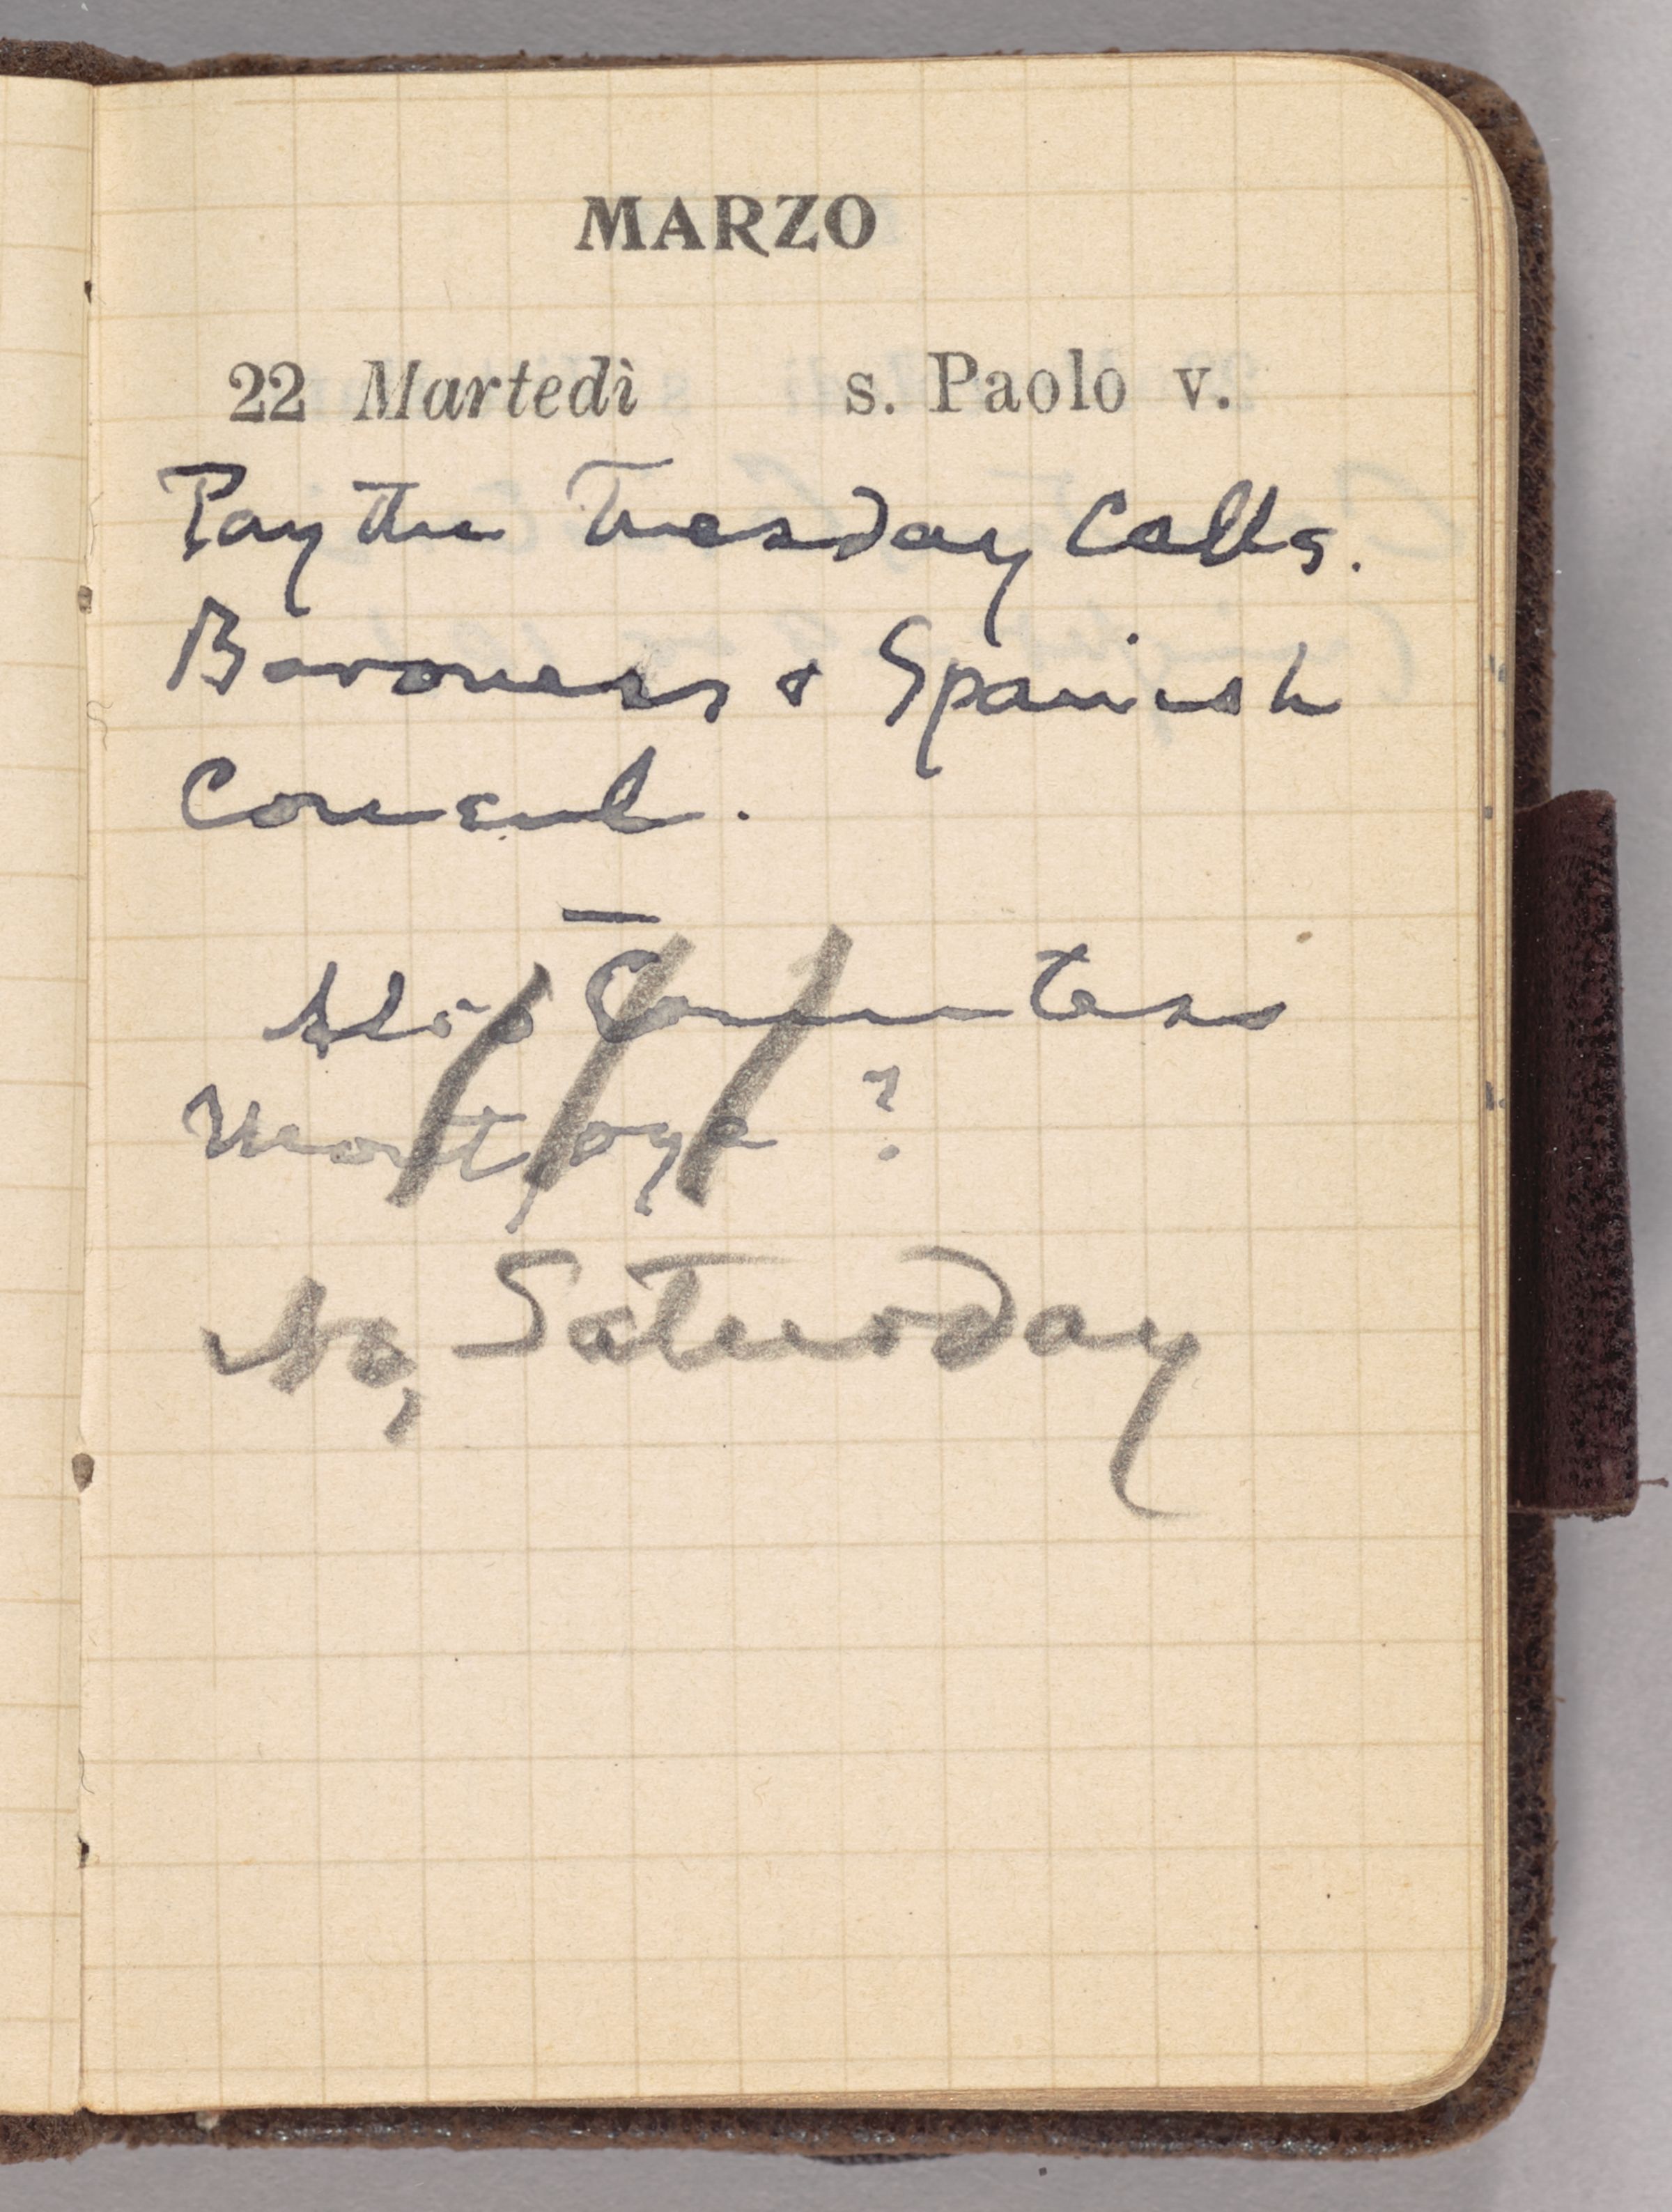 MARZO
22 Martedì s. Paolo v.
Pay the Tuesday Calls.
Baroness & Spanish
Consul.
Also Countess
?
No, Saturday